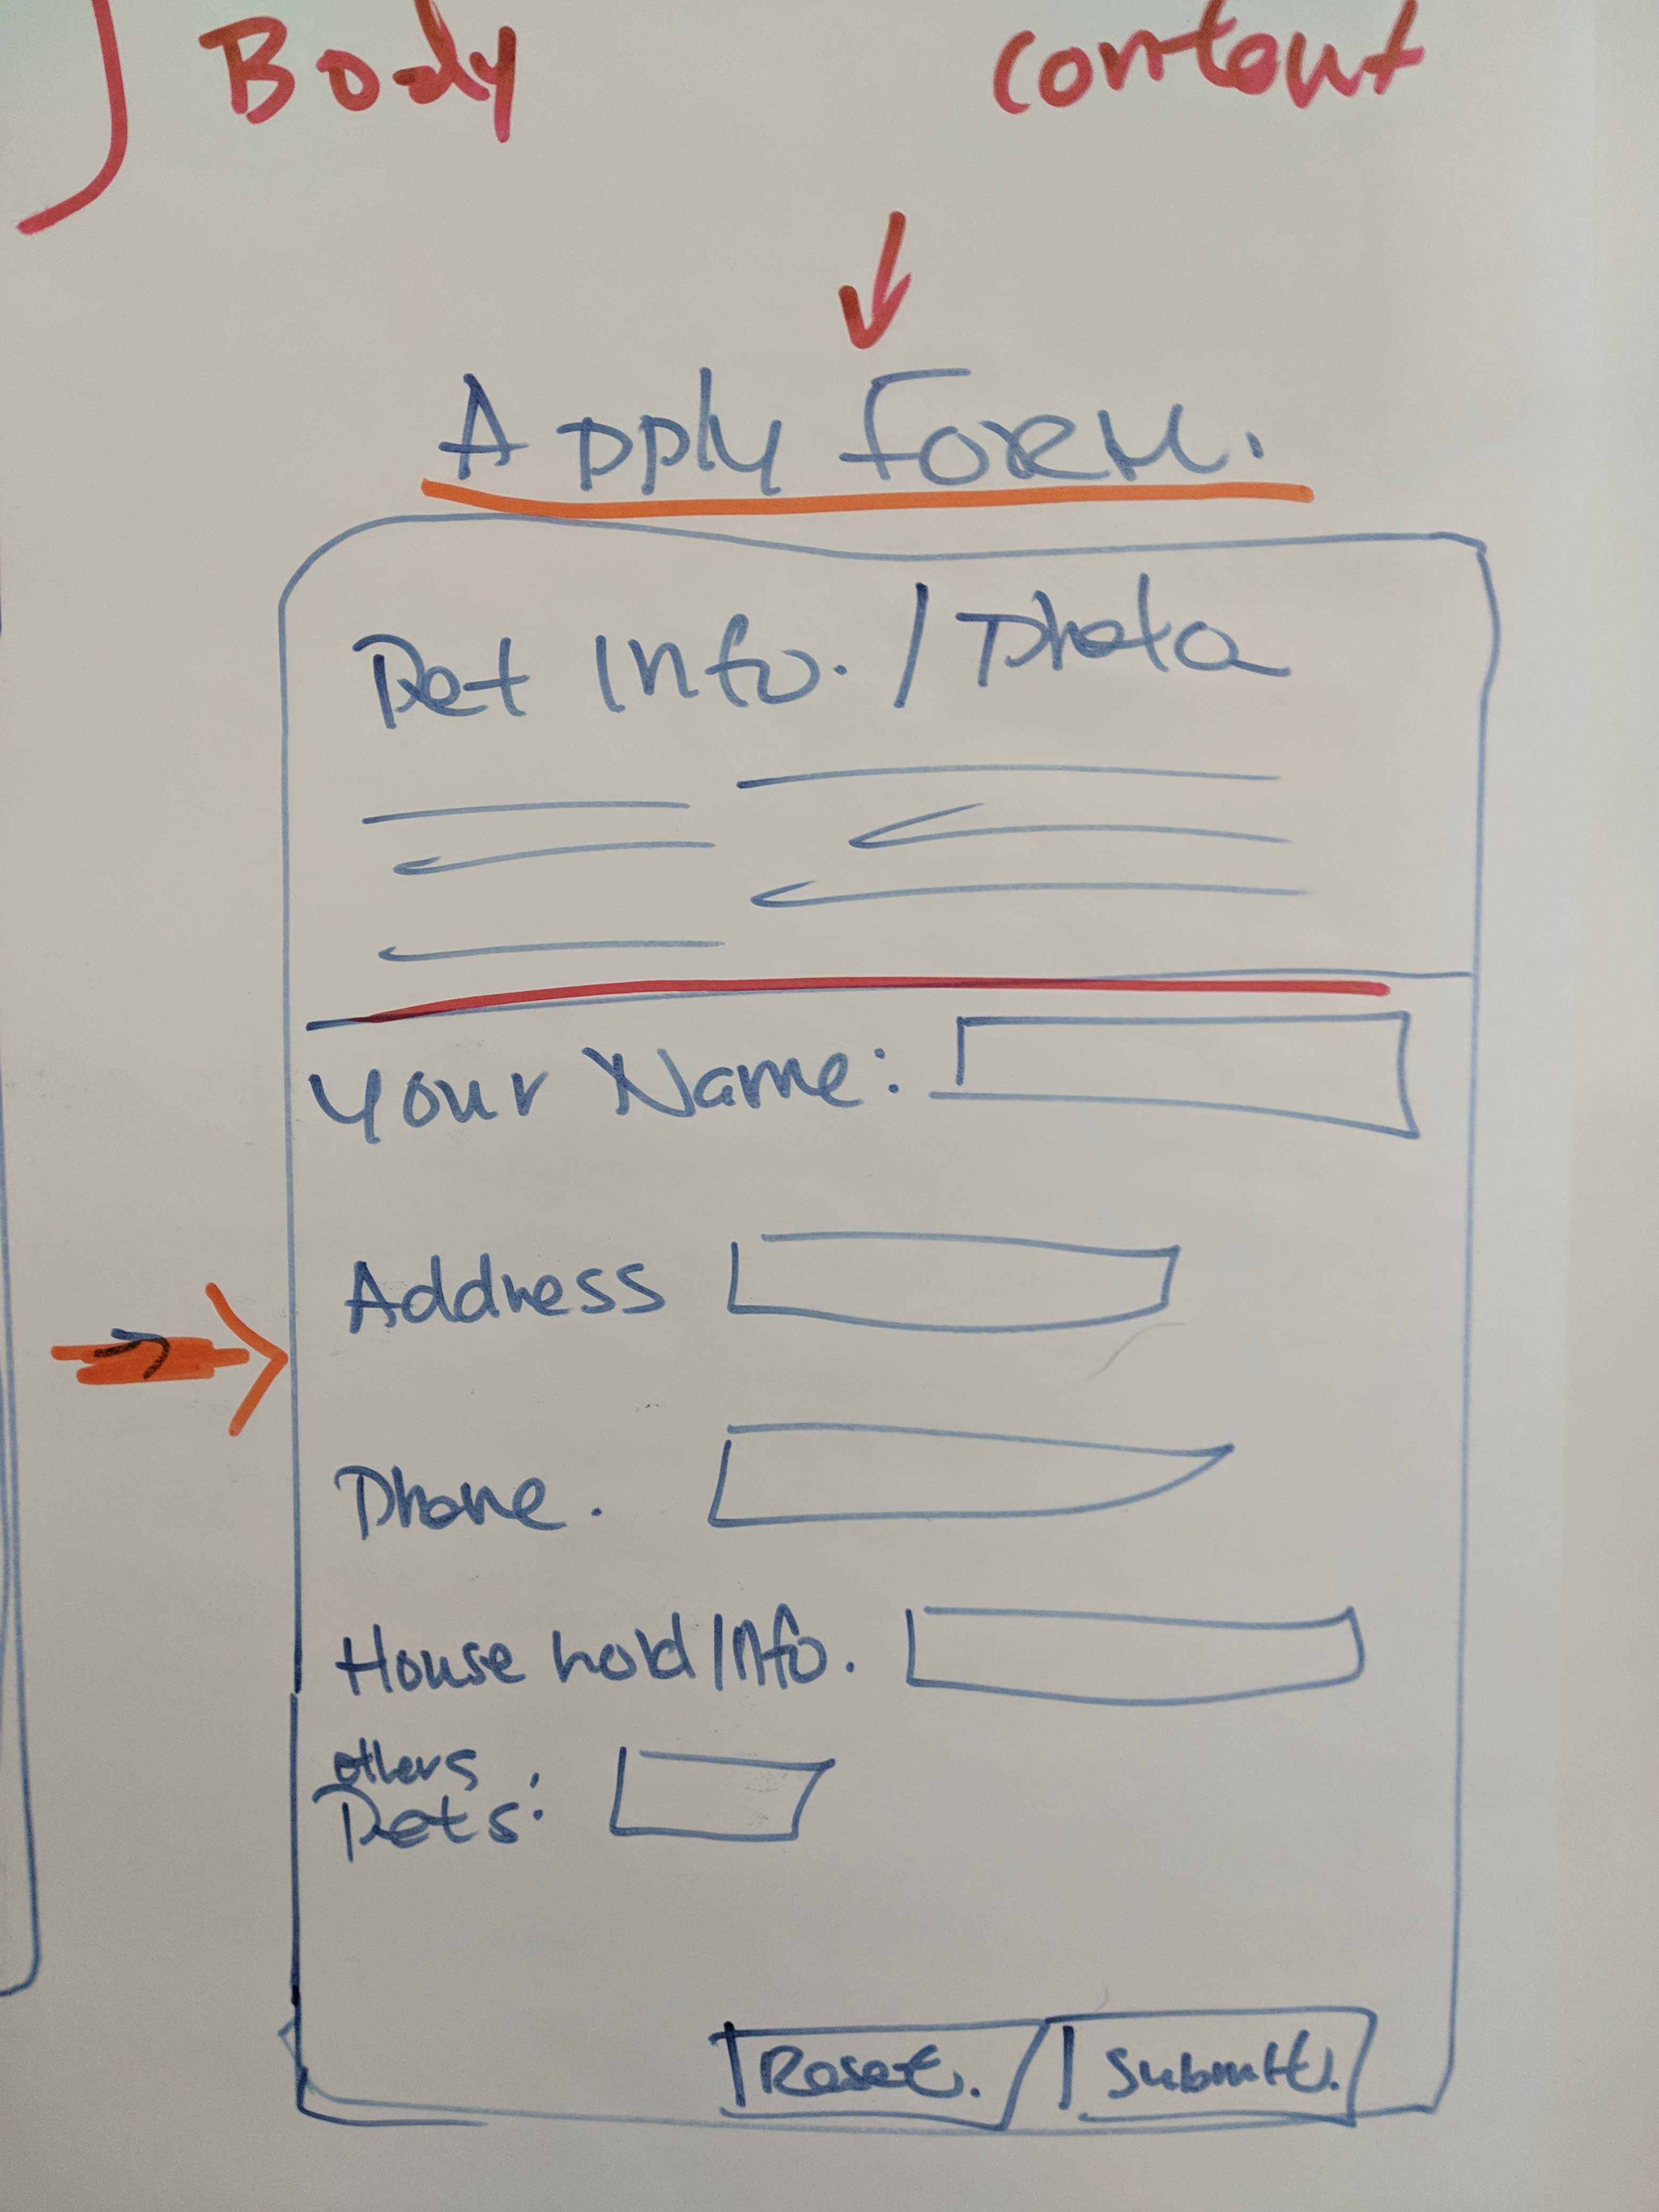 Body content
Apply Form.
Pet Info. / Photo
Your Name:
Address
Phone.
House hold Info.
others
Pets:
Reset. Submit.